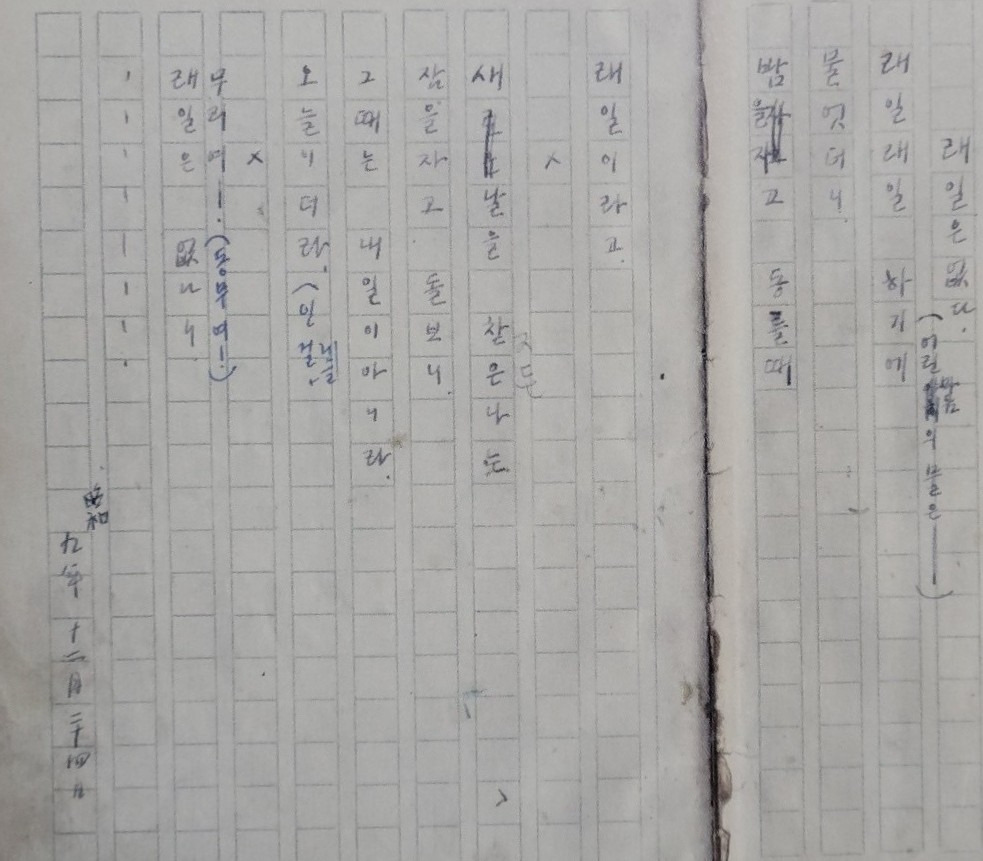 래일은 없다.
(어린 마음의 물은———)
래일 래일 하기에
물엇더니
밤을자고 동틀때
래일이라고
×
새날을 찾은 나는
잠을 자고 돌보니
그때는 내일이아니라.
오늘이더라.
×
무리여—. (동무여—.)
래일은 없나니
昭和九年 十二月二十四日